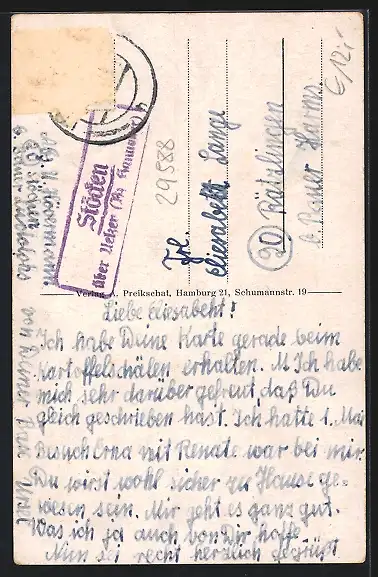 Liebe Eliesabeht!
Ich habe Deine Karte gerade beim
Kartoffelschälen erhalten. M Ich habe
mich sehr darüber gefreut, daß Du
gleich geschrieben hast. Ich hatte 1. Mai
Besuch Erna mit Renate war bei mir.
Du wirst wohl sicher zu Hause ge-
wesen sein. Mir geht es ganz gut.
Was ich ja auch von Dir hoffe.
Nun sei recht herzlich gegrüßt
von Deiner
Frl.
Eliesabeth Lange
20 Rätzlingen
b. Harms
Stöcken
über Uelzen (Bz Hannover)
29588
Verlag A. Preikschat, Hamburg 21, Schumannstr. 19